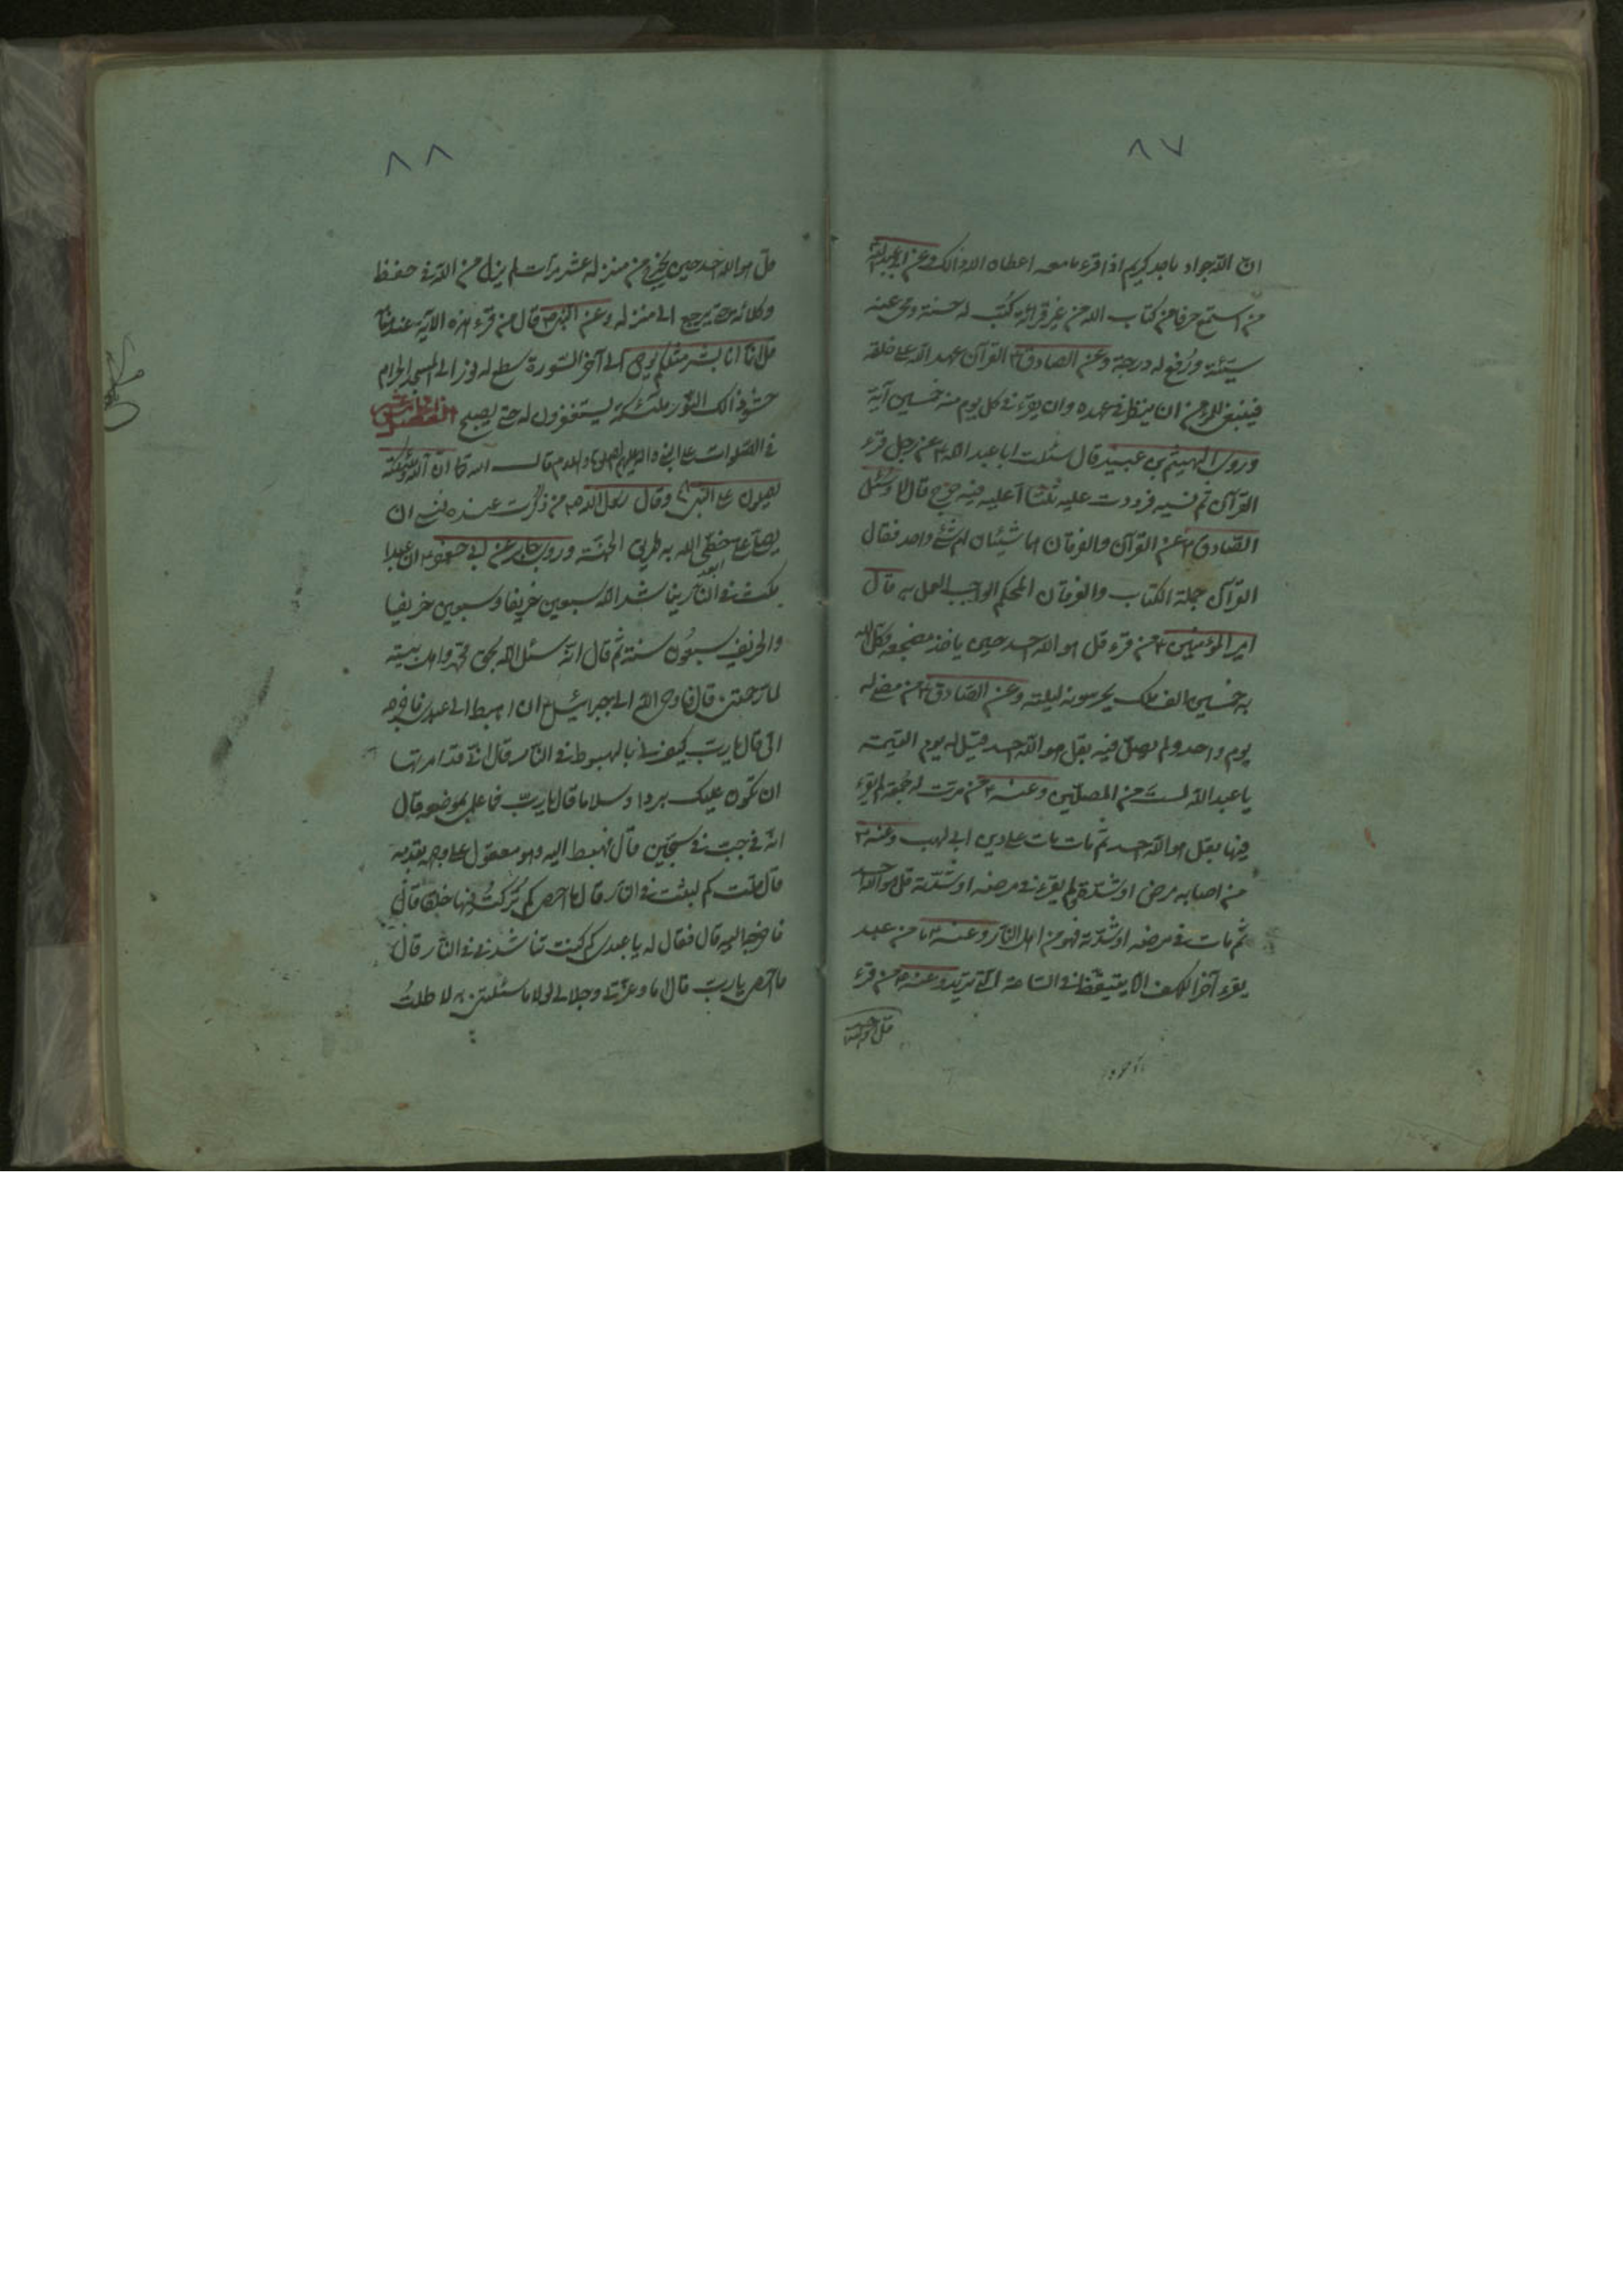 ٨٧
ان الله جواد ماجد كريم اذا قرء ما معه اعطاه الله ذالك وعن ابي عبدالله
من استمع حرفا من كتاب الله من غير قرائة كتب له حسنة ومحى عنه
سيئة ورُفع له درجة وعن الصادق ع القرآن عهد الله على خلقه
فينبغي للمؤمن ان ينظر في عهده وان يقرء في كل يوم منه خمسين آية
وروى الهيثم بن عبيد قال سئلت ابا عبد الله ع عن رجل قرء
القرآن ثم نسيه فرددت عليه ثلثا أعليه فيه حرج قال لا وسئل
الصادق ع عن القرآن والفرقان اهما شيئان ام شئ واحد فقال
القرآن جملة الكتاب والفرقان المحكم الواجب العمل به قال
امير المؤمنين ع من قرء قل هو الله احد حين ياخذ مضجعه وكل الله
به خمسين الف ملك يحرسونه ليلته وعن الصادق ع من مضى له
يوم واحد ولم يصل فيه بقل هو الله احد قيل له يوم القيمة
يا عبد الله لست من المصلين وعنه ع من مرت له جمعة لم يقرء
فيها بقل هو الله احد ثم مات مات على دين ابي لهب وعنه ع
من اصابه مرض او شدة لم يقرء في مرضه او شدته قل هو الله احد
ثم مات في مرضه او شدته فهو من اهل النار وعنه ع ما من عبد
يقرء آخر الكهف الا يتيقظ في الساعة التي يريد وعنه ع من قرء
٨٨
قل هو الله احد حين يخرج من منزله عشر مرات لم يزل من الله في حفظ
وكلائه حتى يرجع الى منزله وعن النبي ص قال من قرء هذه الاية عند منامه
قل انما انا بشر مثلكم يوحى الى آخر السورة سطع له نور الى المسجد الحرام
حشو ذالك النور ملئكة يستغفرون له حتى يصبح
ان الله وملئكته
يصلون على النبي وقال رسول الله ص من ذكرت عنده فنسى ان
يصلى على خطى الله به طريق الجنة وروى جابر عن ابي جعفر ع ان عبدا
مكث في النار يناشد الله سبعين خريفا وسبعين خريفا
والخريف سبعون سنة ثم قال انه سئل الله بحق محمد واهل بيته
لما رحمتني قال فاوحى الله الى جبرائيل ع ان اهبط الى عبدى فاخرجه
الى قال يا رب كيف لى بالهبوط في النار قال انى قد امرتها
ان تكون عليك بردا وسلاما قال يا رب فما علمى بموضعه قال
انه في جب في سجين قال فهبط اليه وهو معقول على وجهه بقدمه
قال قلت كم لبثت في النار قال ما احصى كم تركت فيها خلقا قال
فاخرجه اليه قال فقال له يا عبدى كم كنت تناشدنى في النار قال
ما احصى يا رب قال اما وعزتى وجلالى لولا ما سئلتنى به لاطلت